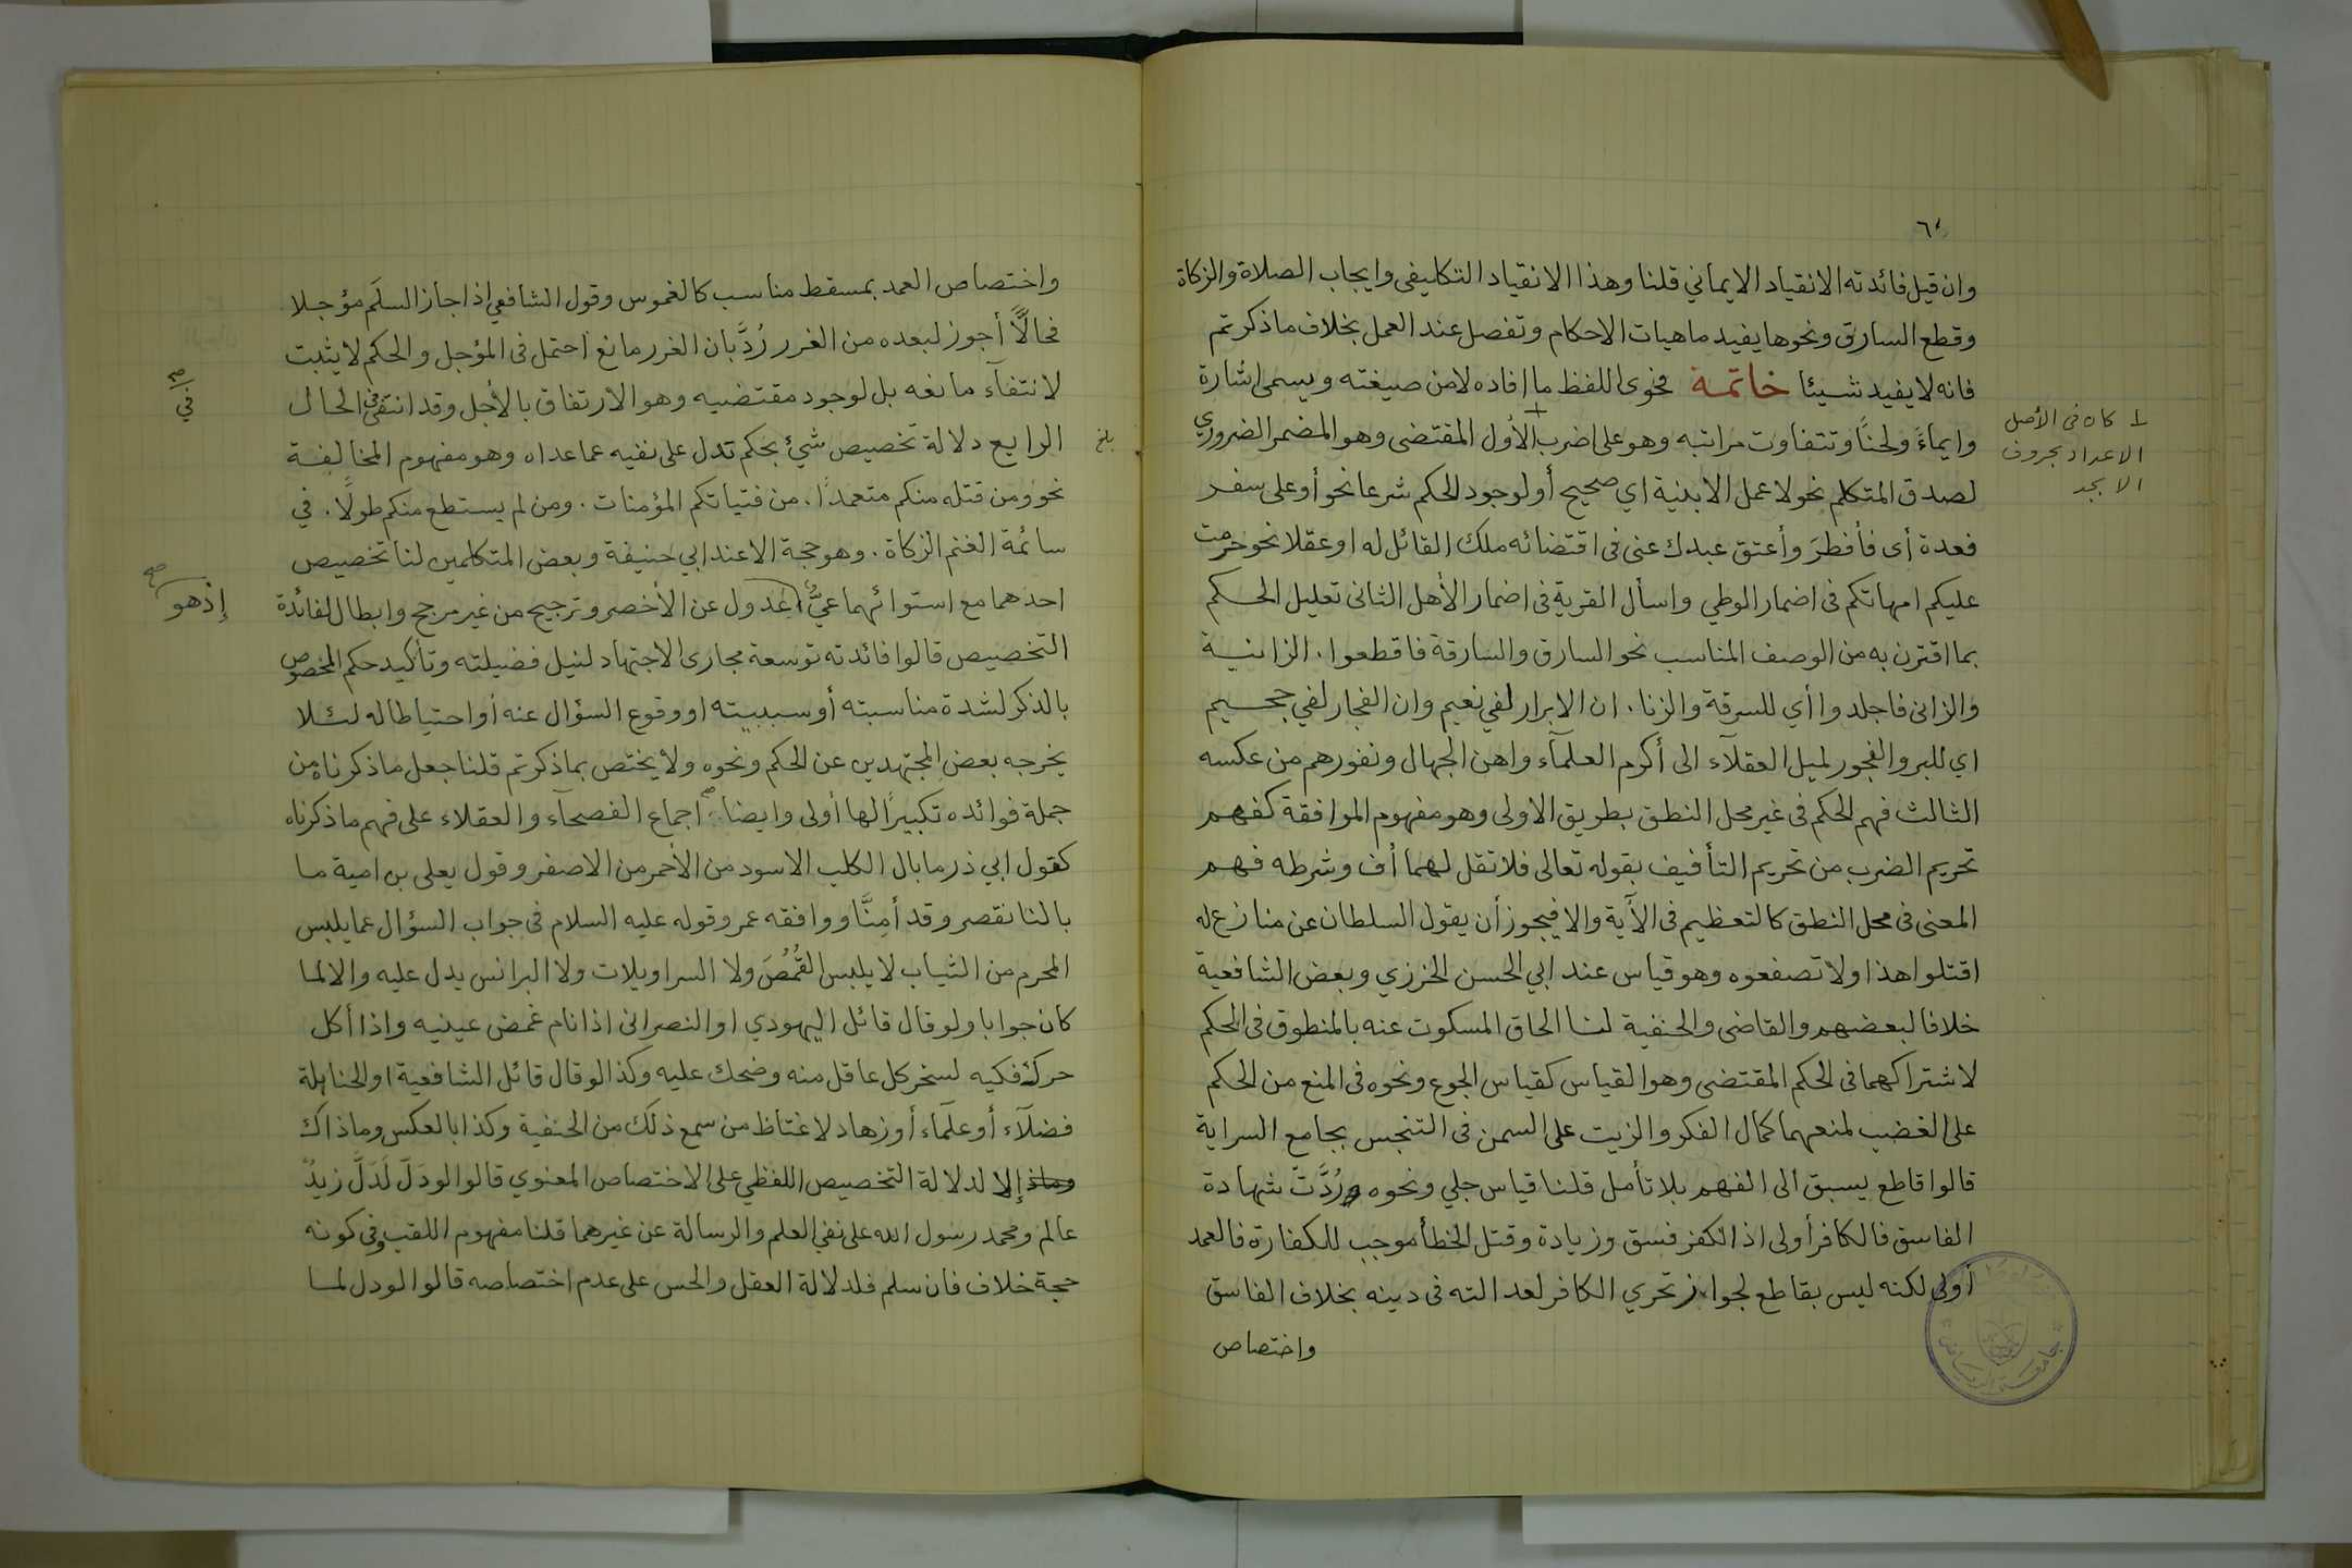 ٦٠
وان قيل فائدته الانقياد الايماني قلنا وهذا الانقياد التكليفى وايجاب الصلاة والزكاة
وقطع السارق ونحوها يفيد ماهيات الاحكام وتفصل عند العمل بخلاف ما ذكرتم
فانه لا يفيد شيئا خاتمة فحوى اللفظ ما افاده لا من صيغته ويسمى اشارة
وايماءً ولحنًا وتتفاوت مراتبه وهو على اضرب الأول المقتضى وهو المضمر الضروري
لصدق المتكلم نحو لا عمل الا بنية اي صحيح أو لوجود الحكم شرعا نحو أو على سفر
فعدة أى فأفطرَ وأعتق عبدك عنى فى اقتضائه ملك القائل له او عقلا نحو حرمت
عليكم امهاتكم فى اضمار الوطي واسأل القرية فى اضمار الأهل الثانى تعليل الحكم
بما اقترن به من الوصف المناسب نحو السارق والسارقة فاقطعوا . الزانية
والزانى فاجلدوا أي للسرقة والزنا . ان الابرار لفي نعيم وان الفجار لفي جحيم
اي للبر والفجور لميل العقلآء الى أكرم العلمآء واهن الجهال ونفورهم من عكسه
الثالث فهم الحكم فى غير محل النطق بطريق الاولى وهو مفهوم الموافقة كفهم
تحريم الضرب من تحريم التأفيف بقوله تعالى فلا تقل لهما أف وشرطه فهم
المعنى فى محل النطق كالتعظيم فى الآية والا فيجوز أن يقول السلطان عن منازع له
اقتلوا هذا ولا تصفعوه وهو قياس عند ابي الحسن الخرزي وبعض الشافعية
خلافا لبعضهم والقاضى والحنفية لنا الحاق المسكوت عنه بالمنطوق فى الحكم
لاشتراكهما فى الحكم المقتضى وهو القياس كقياس الجوع ونحوه فى المنع من الحكم
على الغضب لمنعهما كمال الفكر والزيت على السمن فى التنجس بجامع السراية
قالوا قاطع يسبق الى الفهم بلا تأمل قلنا قياس جلي ونحوه رُدَّتْ شهادة
الفاسق فالكافر أولى اذ الكفر فسق وزيادة وقتل الخطأ موجب للكفارة فالعمد
أولى لكنه ليس بقاطع لجواز تحري الكافر لعدالته فى دينه بخلاف الفاسق
واختصاص
⊥ كان فى الأصل
الاعداد بحروف
الابجد
واختصاص العمد بمسقط مناسب كالغموس وقول الشافعي اذا جاز السلَم مؤجلا
فحالًّا أجوز لبعده من الغرر رُدَّ بان الغرر مانع احتمل فى المؤجل والحكم لا يثبت
لانتفآء مانعه بل لوجود مقتضيه وهو الارتفاق بالأجل وقد انتفى الحال
الرابع دلالة تخصيص شيئ بحكم تدل على نفيه عما عداه وهو مفهوم المخالفة
نحو ومن قتله منكم متعمدًا . من فتياتكم المؤمنات . ومن لم يستطع منكم طولًا . في
سائمة الغنم الزكاة . وهو حجة الا عند ابي حنيفة وبعض المتكلمين لنا تخصيص
احدهما مع استوائهما عيٌّ عدول عن الأخصر وترجيح من غير مرجح وابطال لفائدة
التخصيص قالوا فائدته توسعة مجارى الاجتهاد لنيل فضيلته وتأكيد حكم المخصوص
بالذكر لشدة مناسبته أو سببيته او وقوع السؤال عنه أو احتياطا له لئلا
يخرجه بعض المجتهدين عن الحكم ونحوه ولا يختص بما ذكرتم قلنا جعل ما ذكرناه من
جملة فوائده تكبيرًا لها أولى وايضا اجماع الفصحآء والعقلاء على فهم ما ذكرناه
كقول ابي ذر ما بال الكلب الاسود من الأحمر من الاصفر وقول يعلى بن امية ما
بالنا نقصر وقد أمِنَّا ووافقه عمر وقوله عليه السلام فى جواب السؤال عما يلبس
المحرم من الثياب لا يلبس القُمُصَ ولا السراويلات ولا البرانس يدل عليه والا لما
كان جوابا ولو قال قائل اليهودي او النصرانى اذا نام غمض عينيه واذا أكل
حرك فكيه لسخر كل عاقل منه وضحك عليه وكذا لو قال قائل الشافعية او الحنابلة
فضلآء أو علمآء أو زهاد لاغتاظ من سمع ذلك من الحنفية وكذا بالعكس وما ذاك
وماذ إلا لدلالة التخصيص اللفظي على الاختصاص المعنوي قالوا لو دَلّ لَدَلَّ زيدٌ
عالم ومحمد رسول الله على نفي العلم والرسالة عن غيرهما قلنا مفهوم اللقب وفى كونه
حجة خلاف فان سلم فلدلالة العقل والحس على عدم اختصاصه قالوا لو دل لما
في صح
بلغ
إذ هو صح